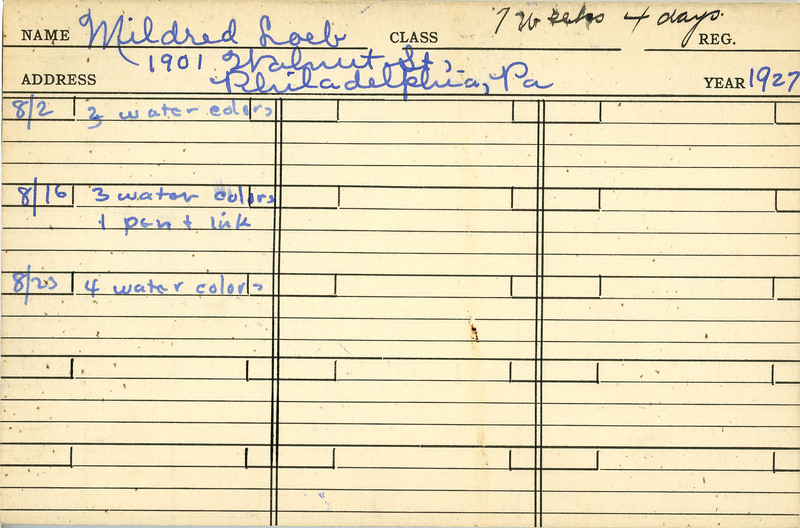 7 weeks 4 days.
NAME Mildred Loeb CLASS REG.
1901 Walnut St.,
ADDRESS Philadelphia, Pa YEAR 1927
8/2 3 water colors
8/16 3 water colors
1 pen + ink
8/23 4 water colors